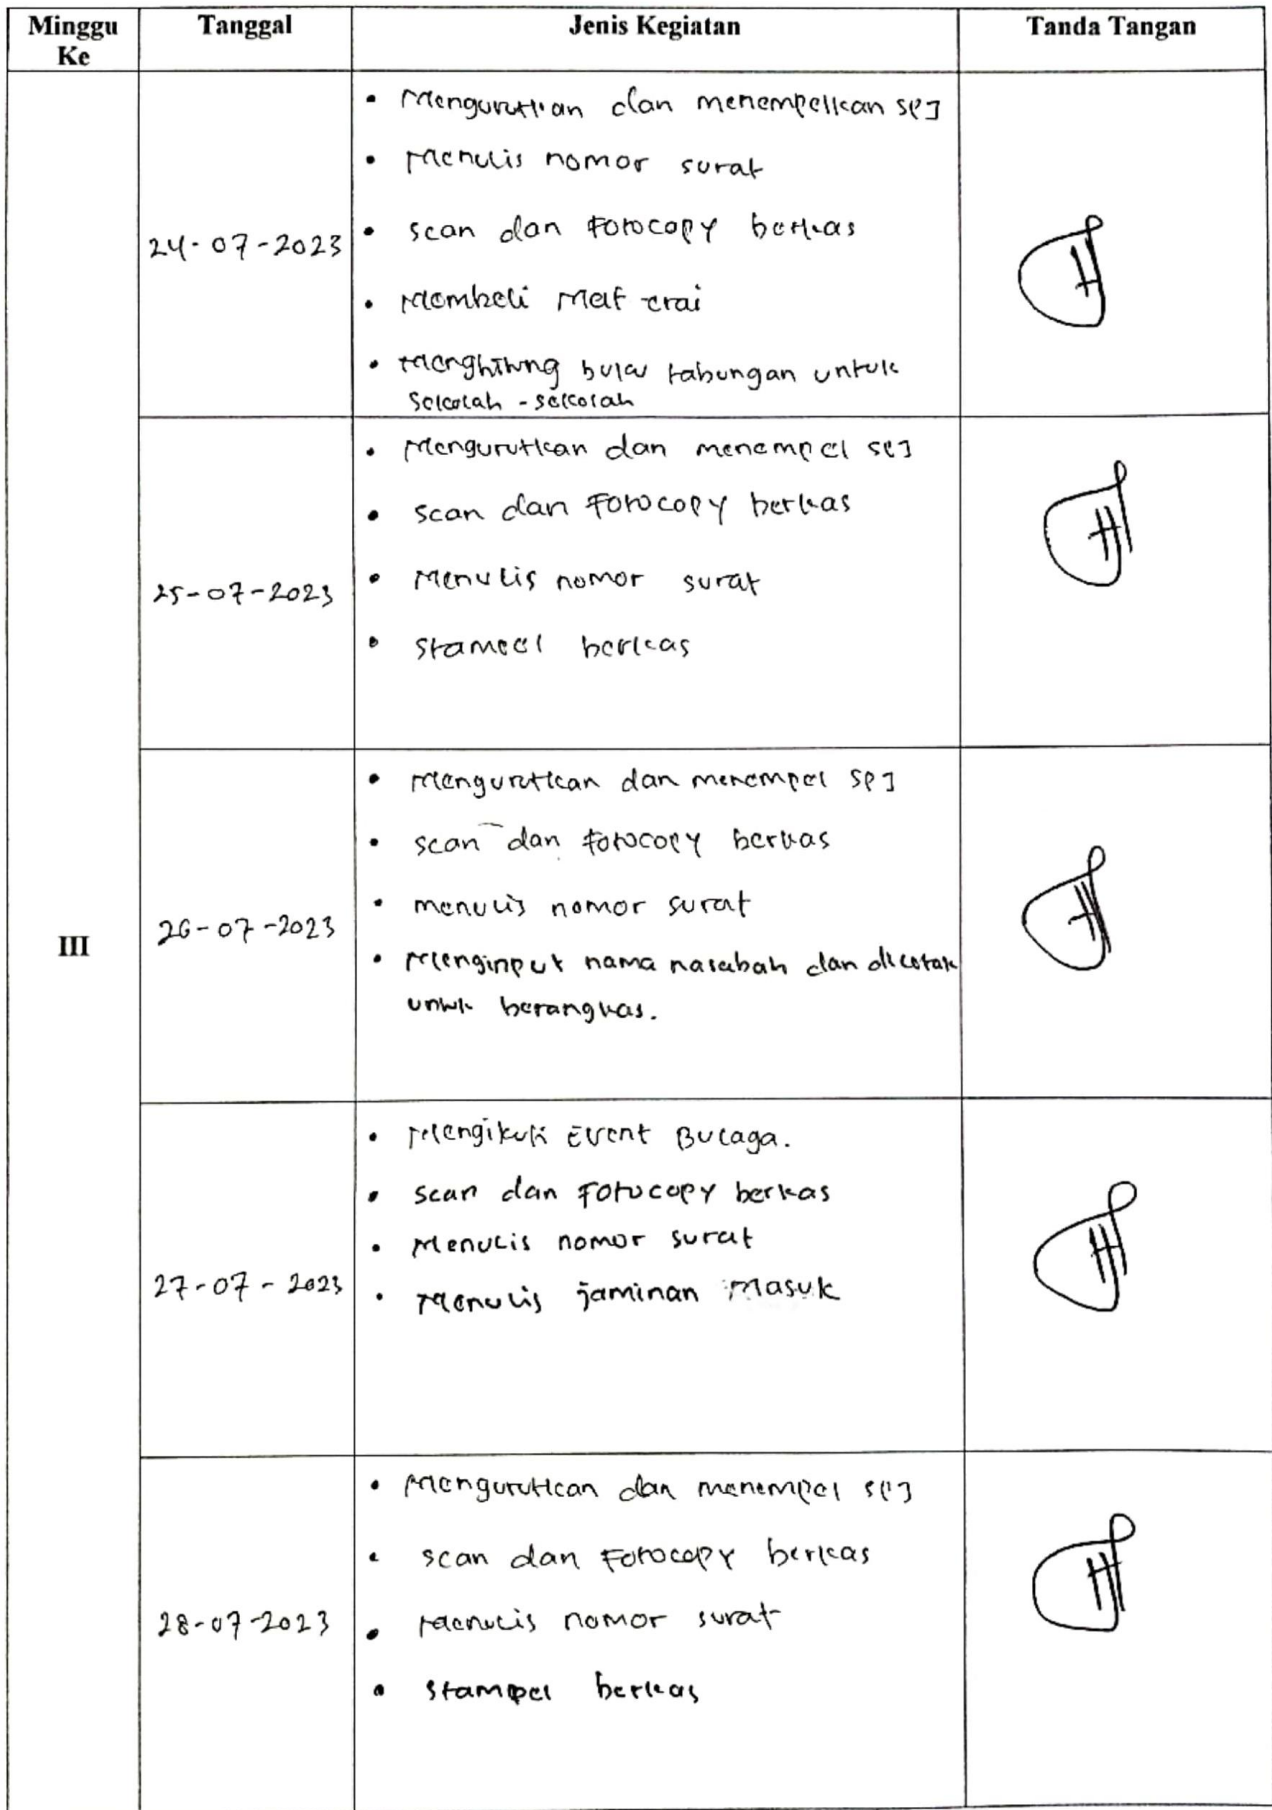 Minggu Ke
Tanggal
Jenis Kegiatan
Tanda Tangan
III
24-07-2023
• Mengurutkan dan menempelkan SPJ
• Menulis nomor surat
• scan dan Fotocopy berkas
• Membeli Materai
• Menghitung buku tabungan untuk
Sekolah - sekolah
25-07-2023
• Mengurutkan dan menempel SPJ
• scan dan Fotocopy berkas
• Menulis nomor surat
• Stampel berkas
26-07-2023
• Mengurutkan dan menempel SPJ
• scan dan fotocopy berkas
• menulis nomor surat
• Menginput nama nasabah dan dicetak
untuk berangkas.
27-07-2023
• Mengikuti Event Bulaga.
• scan dan Fotocopy berkas
• Menulis nomor surat
• Menulis jaminan Masuk
28-07-2023
• Mengurutkan dan menempel SPJ
• scan dan Fotocopy berkas
• Menulis nomor surat
• Stampel berkas